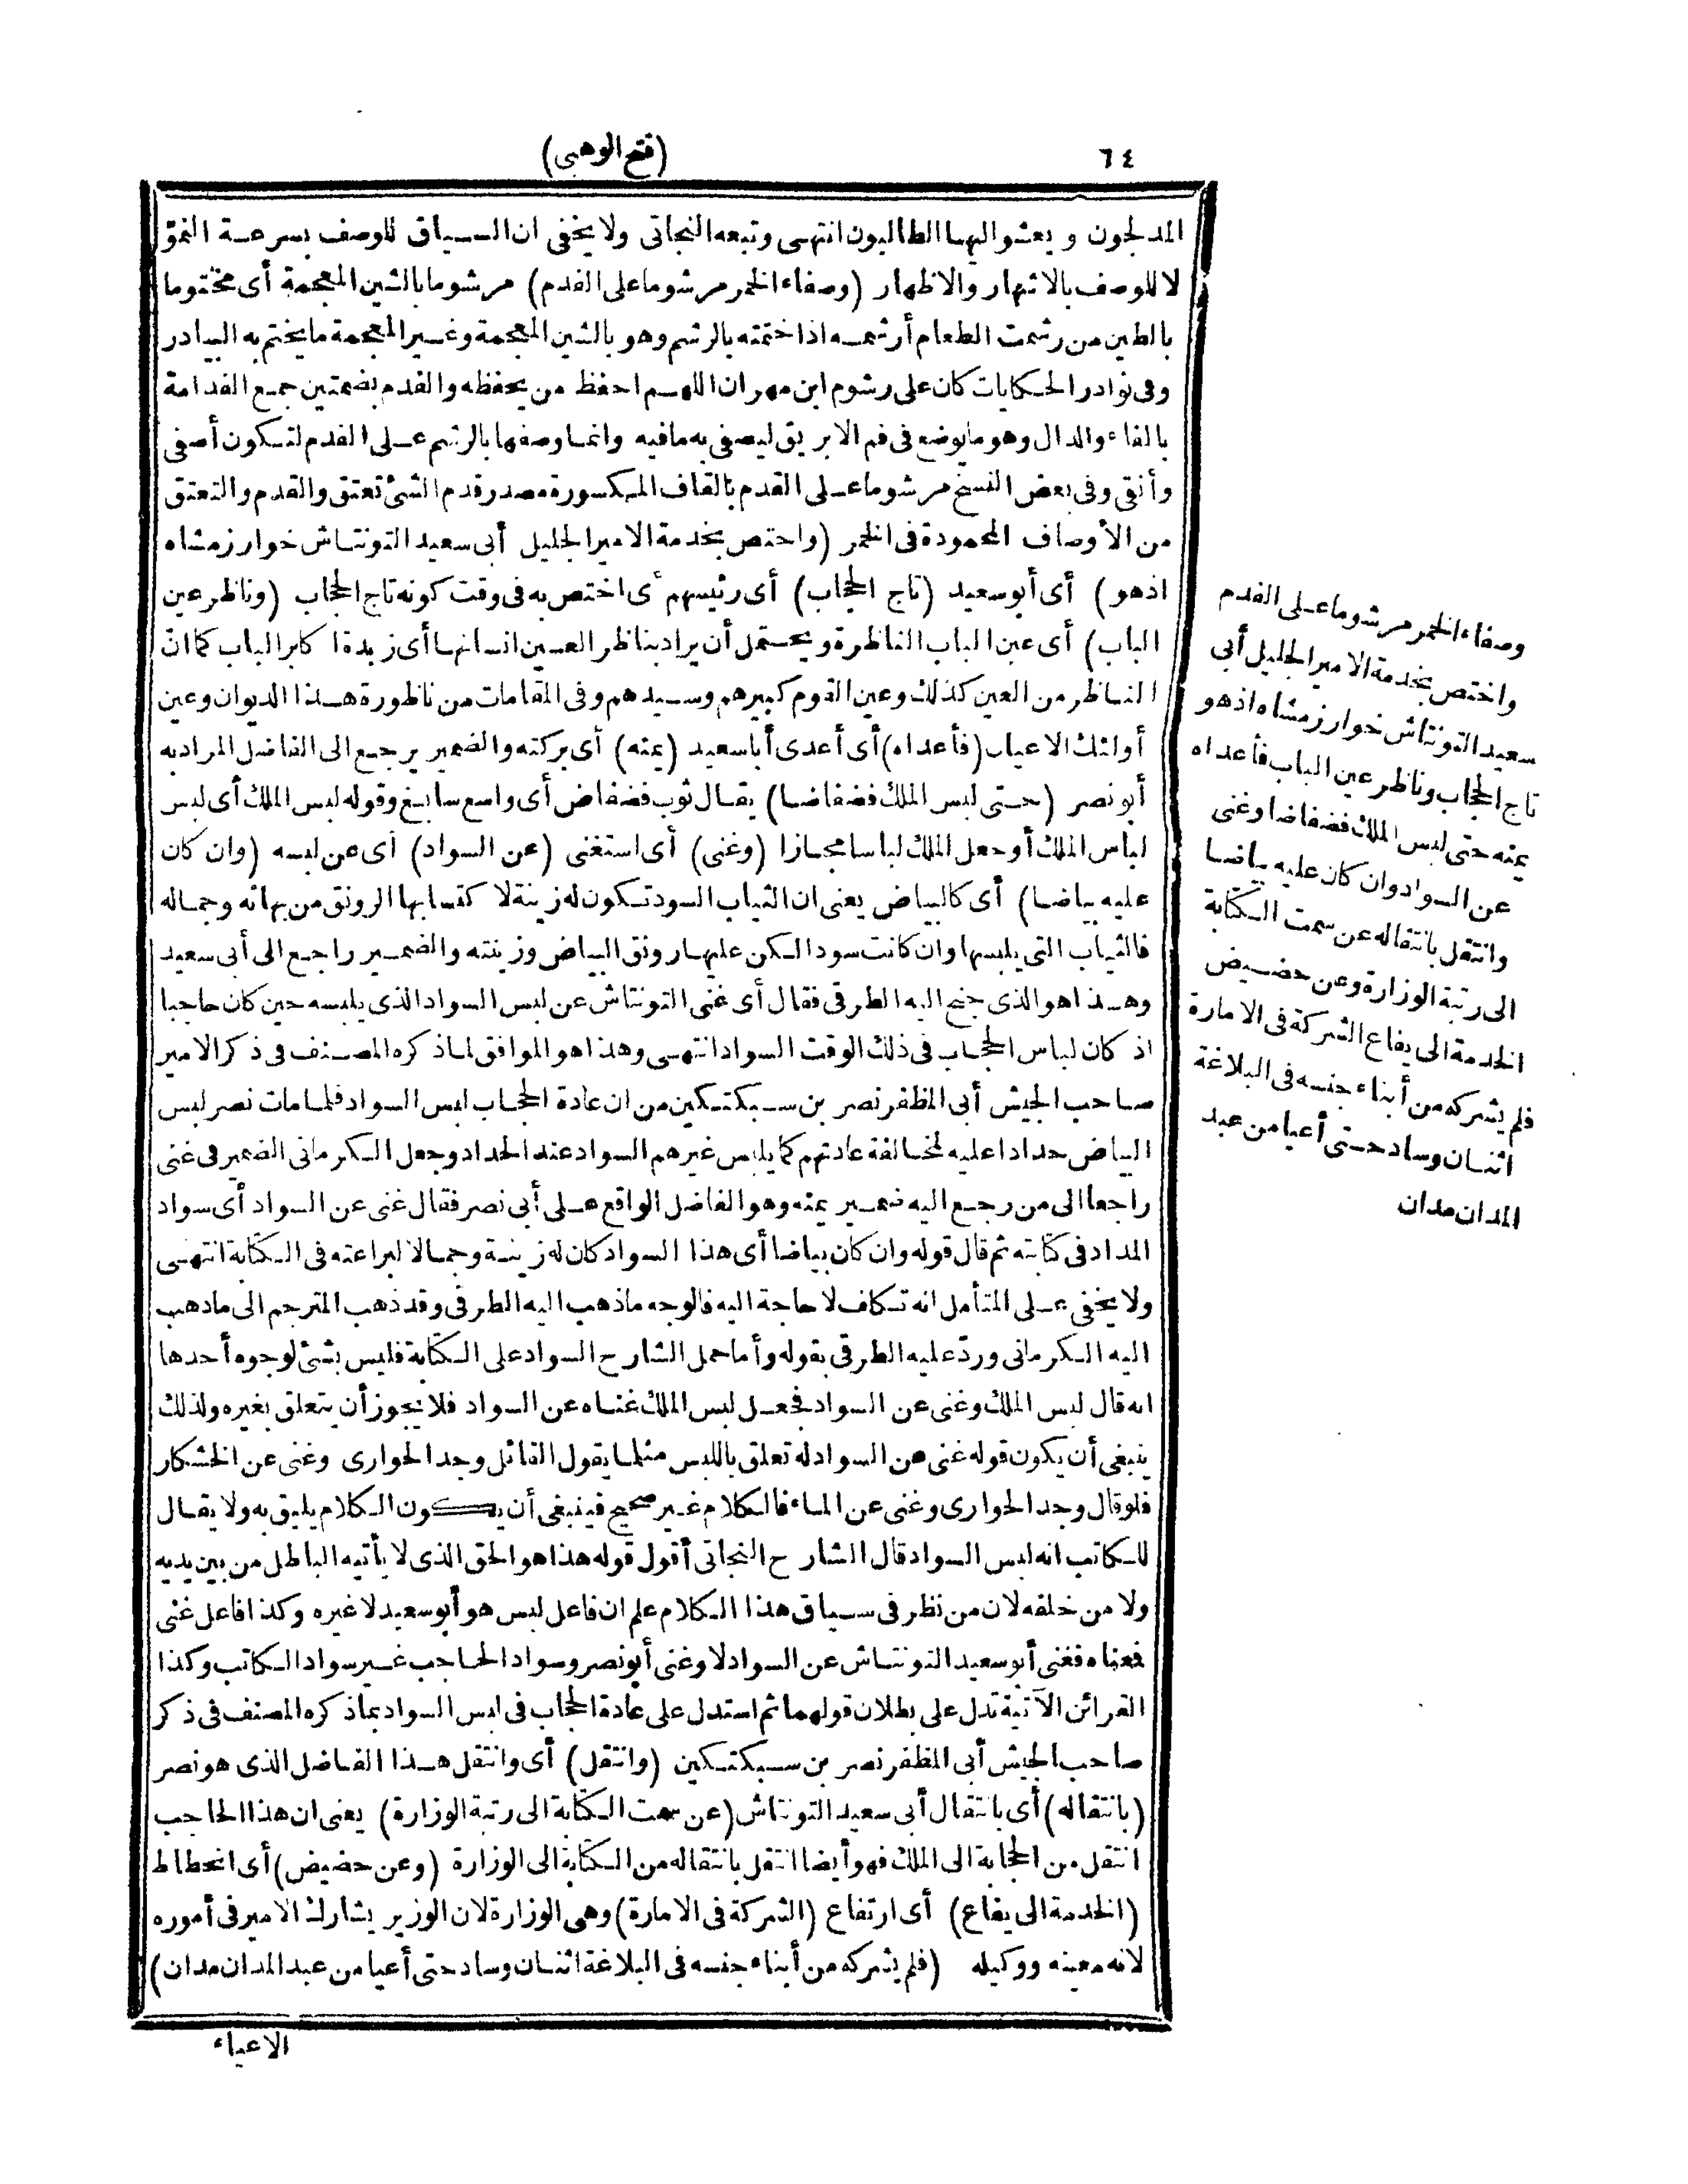 ٦٤
(فتح الوهبى)
المدلجون و يعشو اليها الطالبون انتهى وتبعه النجاتى ولا يخفى ان السياق للوصف بسرعة النموّ
لا للوصف بالاشهار والاظهار (وصفاء الخمر مرشوما على الفدم) مرشوما بالشين المعجمة أى مختوما
بالطين من رشمت الطعام أرشمه اذا ختمته بالرشم وهو بالشين المعجمة وغير المعجمة ما يختم به البيادر
وفى نوادر الحكايات كان على رشوم ابن مهران اللهم احفظ من يحفظه والفدم بضمتين جمع الفدامة
بالفاء والدال وهو ما يوضع فى فم الابريق ليصفى به مافيه وانما وصفها بالرشم على الفدم لتكون أصفى
وأنقى وفى بعض النسخ مرشوما على القدم بالقاف المكسورة مصدر قدم الشئ تعتق والقدم والتعتق
من الأوصاف المحمودة فى الخمر (واختص بخدمة الامير الجليل أبى سعيد التونتاش خوارزمشاه
اذهو) أى أبو سعيد (تاج الحجاب) أى رئيسهم أى اختص به فى وقت كونه تاج الحجاب (وناظر عين
الباب) أى عين الباب الناظرة ويحتمل أن يراد بناظر العين انسانها أى زبدة اكابر الباب كما انّ
الناظر من العين كذلك وعين القوم كبيرهم وسيدهم وفى المقامات من ناظورة هذا الديوان وعين
أولئك الاعيان (فأعداه) أى أعدى أبا سعيد (يمنه) أى بركته والضمير يرجع الى الفاضل المراد به
أبو نصر (حتى لبس الملك فضفاضا) يقال ثوب فضفاض أى واسع سابغ وقوله لبس الملك أى لبس
لباس الملك أو جعل الملك لباسا مجازا (وغنى) أى استغنى (عن السواد) أى عن لبسه (وان كان
عليه بياضا) أى كالبياض يعنى ان الثياب السود تكون له زينة لاكتسابها الرونق من بهائه وجماله
فالثياب التى يلبسها وان كانت سودا لكن عليها رونق البياض وزينته والضمير راجع الى أبى سعيد
وهذا هو الذى جنح اليه الطرقى فقال أى غنى التونتاش عن لبس السواد الذى يلبسه حين كان حاجبا
اذ كان لباس الحجاب فى ذلك الوقت السواد انتهى وهذا هو الموافق لما ذكره المصنف فى ذكر الامير
صاحب الجيش أبى المظفر نصر بن سبكتكين من ان عادة الحجاب لبس السواد فلما مات نصر لبس
البياض حدادا عليه لمخالفة عادتهم كما يلبس غيرهم السواد عند الحداد وجعل الكرمانى الضمير فى غنى
راجعا الى من رجع اليه ضمير يمنه وهو الفاضل الواقع على أبى نصر فقال غنى عن السواد أى سواد
المداد فى كتابته ثم قال قوله وان كان بياضا أى هذا السواد كان له زينة وجمالا لبراعته فى الكتابة انتهى
ولا يخفى على المتأمل انه تكلف لا حاجة اليه فالوجه ما ذهب اليه الطرقى وقد ذهب المترجم الى ما ذهب
اليه الكرمانى وردّ عليه الطرقى بقوله وأما حمل الشارح السواد على الكتابة فليس بشئ لوجوه أحدها
انه قال لبس الملك وغنى عن السواد فجعل لبس الملك غناه عن السواد فلا يجوز أن يتعلق بغيره ولذلك
ينبغى أن يكون قوله غنى عن السواد له تعلق باللبس مثلما يقول القائل وجد الحوارى وغنى عن الخشكار
فلو قال وجد الحوارى وغنى عن الماء فالكلام غير صحيح فينبغى أن يكون الكلام يليق به ولا يقال
للكاتب انه لبس السواد قال الشارح النجاتى أقول قوله هذا هو الحق الذى لا يأتيه الباطل من بين يديه
ولا من خلفه لان من نظر فى سياق هذا الكلام علم ان فاعل لبس هو أبو سعيد لا غيره وكذا فاعل غنى
فمعناه فغنى أبو سعيد التونتاش عن السواد لا وغنى أبو نصر وسواد الحاجب غير سواد الكاتب وكذا
القرائن الآتية تدل على بطلان قولهما ثم استدل على عادة الحجاب فى لبس السواد بما ذكره المصنف فى ذكر
صاحب الجيش أبى المظفر نصر بن سبكتكين (وانتقل) أى وانتقل هذا الفاضل الذى هو نصر
(بانتقاله) أى بانتقال أبى سعيد التونتاش (عن سمت الكتابة الى رتبة الوزارة) يعنى ان هذا الحاجب
انتقل من الحجابة الى الملك فهو أيضا انتقل بانتقاله من الكتابة الى الوزارة (وعن حضيض) أى انحطاط
(الخدمة الى يفاع) أى ارتفاع (الشركة فى الامارة) وهى الوزارة لان الوزير يشارك الامير فى أموره
لانه معينه ووكيله (فلم يشركه من أبناء جنسه فى البلاغة اثنان وساد حتى أعيا من عبد المدان مدان)
الاعياء
وصفاء الخمر مرشوما على الفدم
واختص بخدمة الامير الجليل أبى
سعيد التونتاش خوارزمشاه اذهو
تاج الحجاب وناظر عين الباب فأعداه
يمنه حتى لبس الملك فضفاضا وغنى
عن السواد وان كان عليه بياضا
وانتقل بانتقاله عن سمت الكتابة
الى رتبة الوزارة وعن حضيض
الخدمة الى يفاع الشركة فى الامارة
فلم يشركه من أبناء جنسه فى البلاغة
اثنان وساد حتى أعيا من عبد
المدان مدان